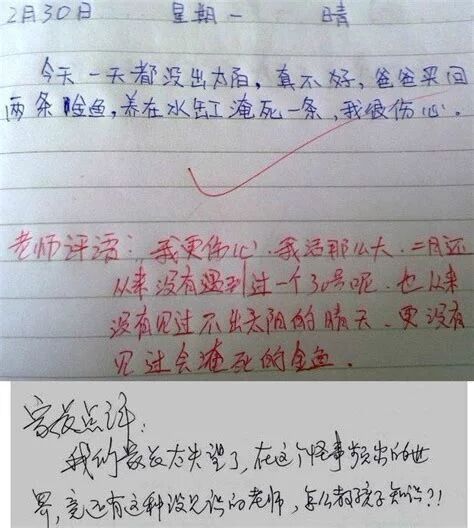 2月30日 星期一 晴
今天一天都没出太阳，真不好，爸爸买回
两条金鱼，养在水缸淹死一条，我很伤心。
老师评语：我更伤心，我活那么大，二月还
从来没有遇到过一个30号呢，也从来
没有见过不出太阳的晴天，更没有
见过会淹死的金鱼．
家长点评：
我们家长太失望了，在这个怪事频出的世
界，竟还有这种没见识的老师，怎么教孩子知识?!!